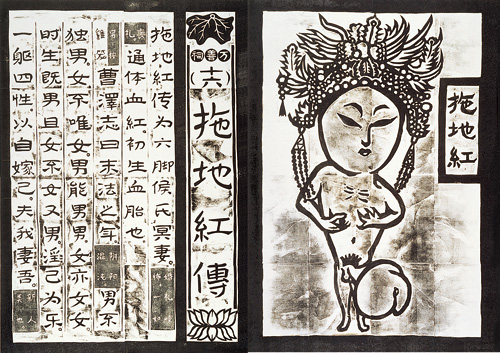 拖地紅
万善祠
拖地紅傳
拖地紅传为六脚侯氏冥妻。
通体血紅初生血胎也
曹澤志曰末法之年 男不
独男女不唯女。男能男男女亦女女。
时生既男且女不女又男淫己为乐
一躯四性以自嫁己。夫我悽吾。